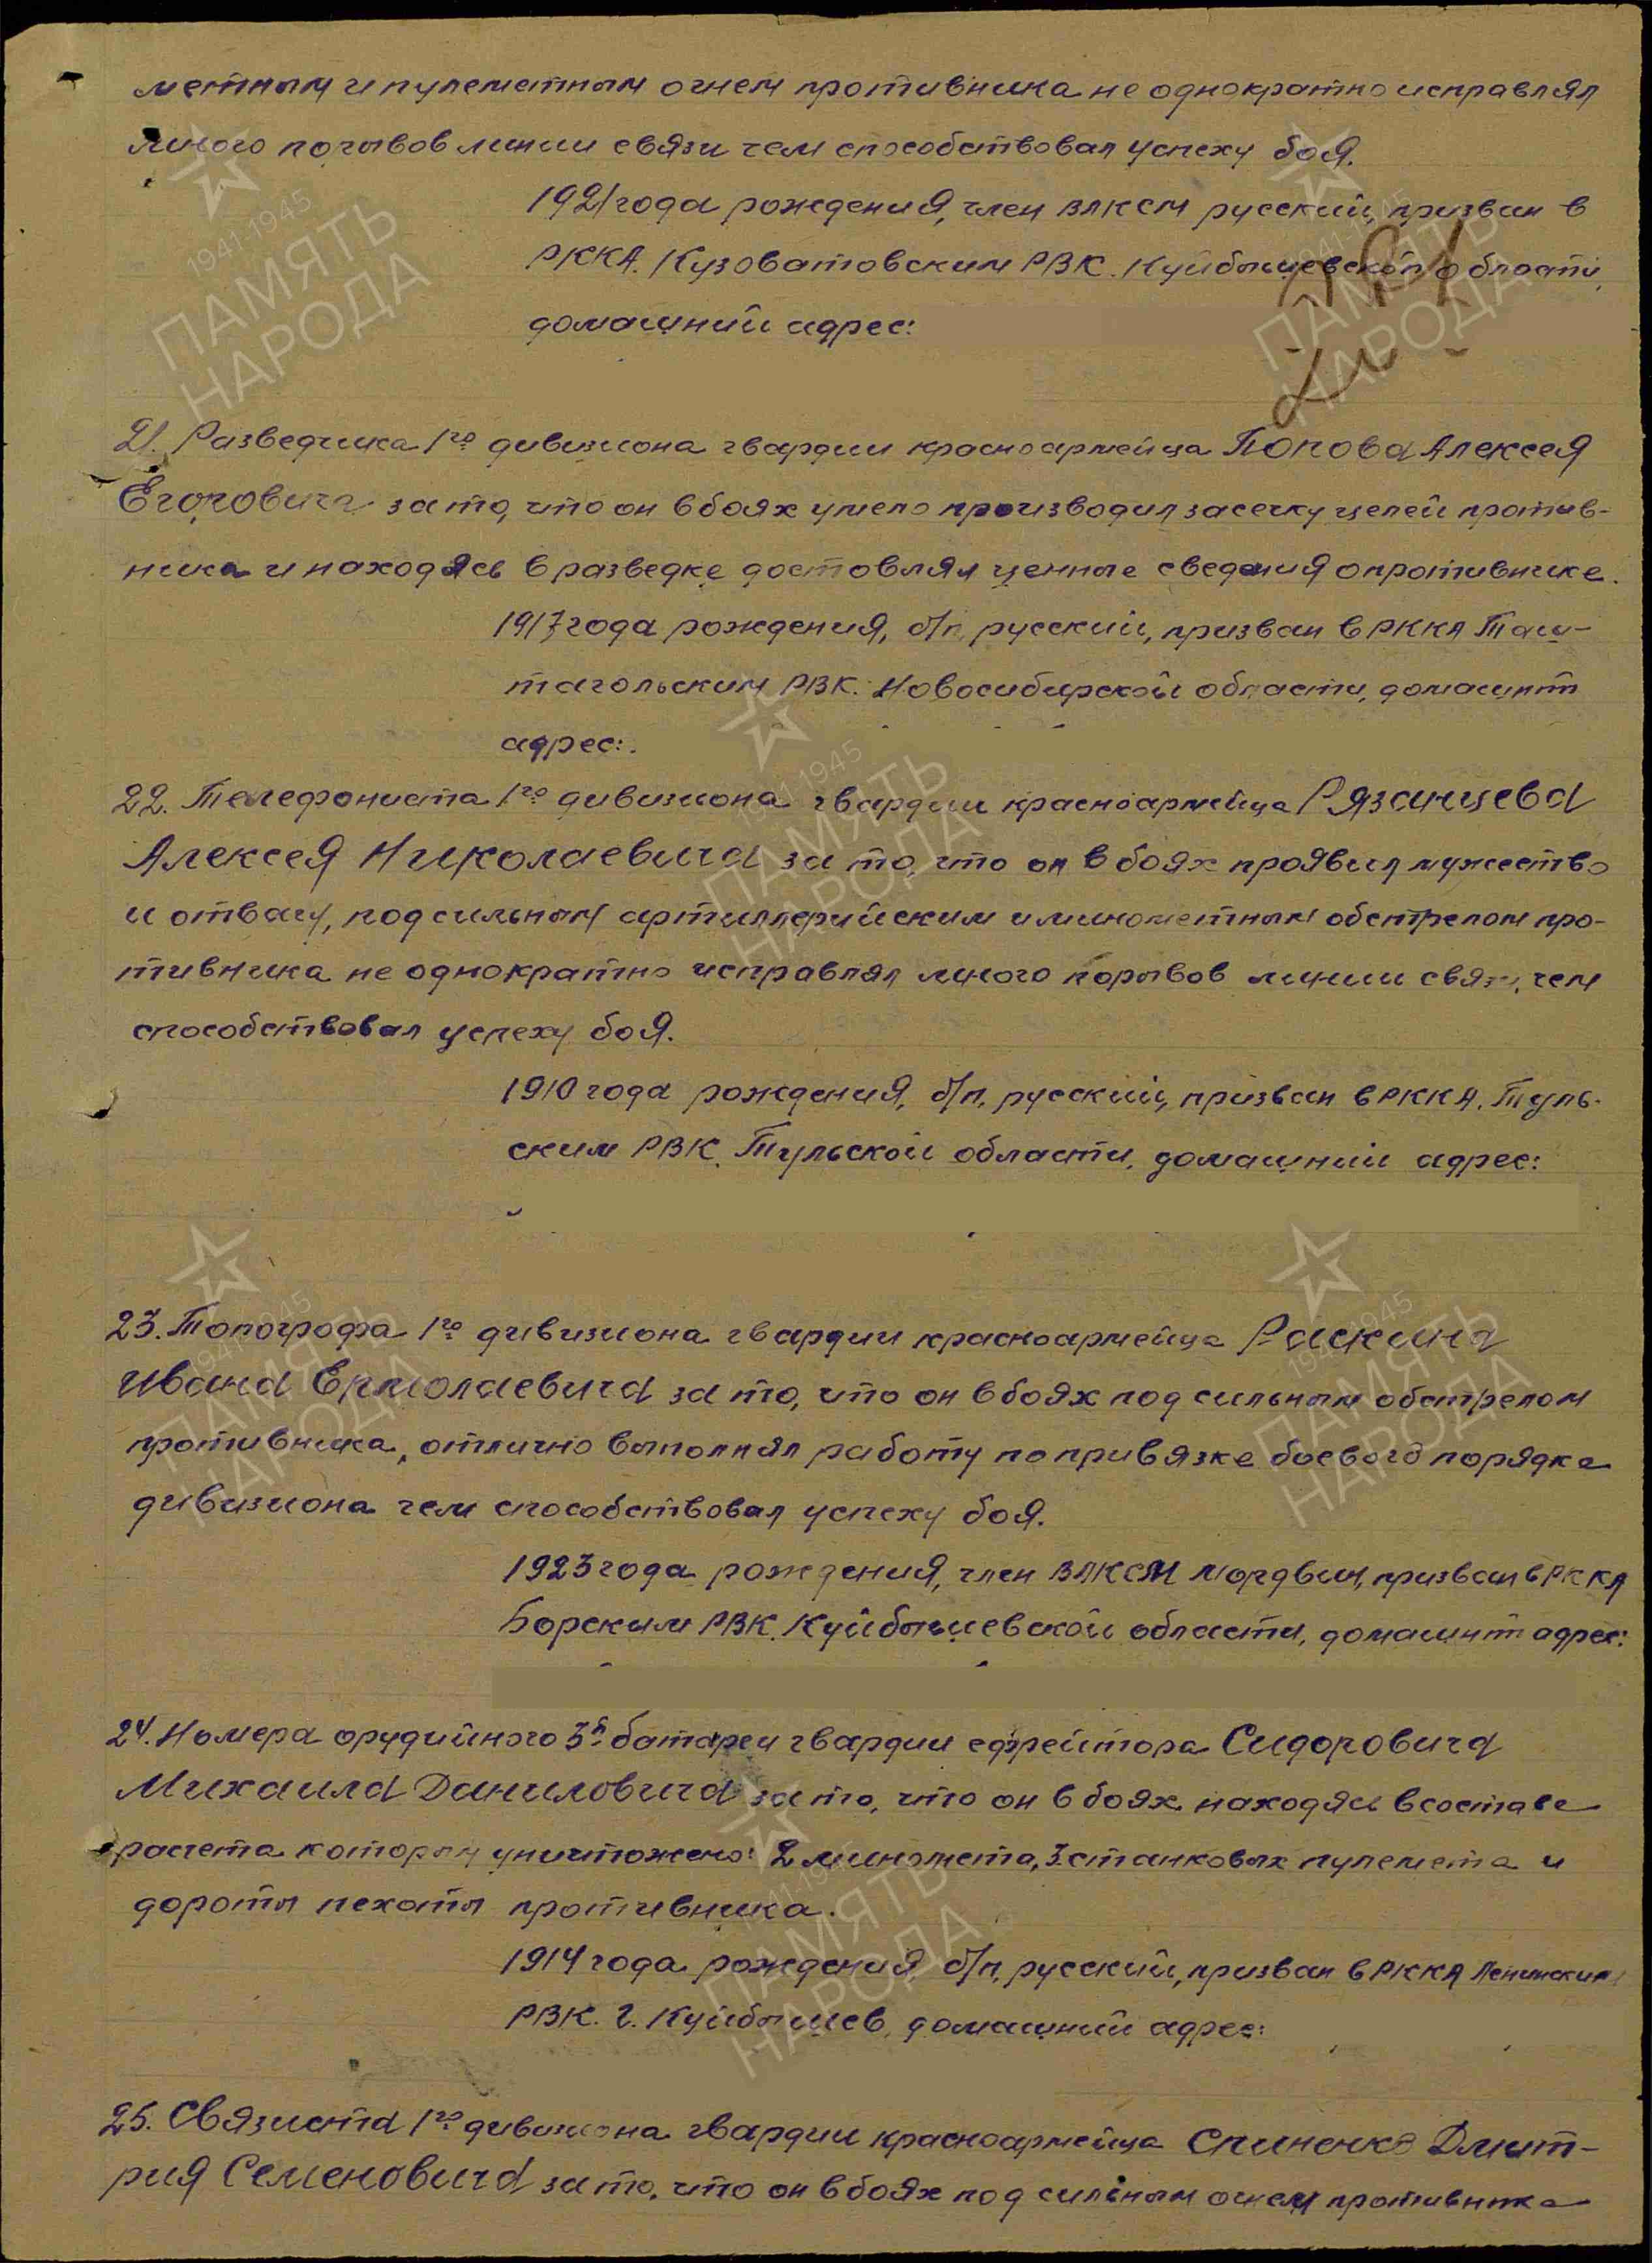 метным и пулеметным огнем противника не однократно исправлял
много порывов линии связи чем способствовал успеху боя.
1921 года рождения, член ВЛКСМ русский, призван в
РККА. Кузоватовским РВК. Куйбышевской области,
домашний адрес:
21. Разведчика 1го дивизиона гвардии красноармейца Попова Алексея
Егоровича за то, что он в боях умело производил засечку целей против-
ника и находясь в разведке доставлял ценные сведения о противнике.
1917 года рождения, б/п, русский, призван в РККА Таш-
тагольским РВК. Новосибирской области, домашнт
адрес:
22. Телефониста 1го дивизиона гвардии красноармейца Рязанцева
Алексея Николаевича за то, что он в боях проявил мужество
и отвагу, под сильным артиллерийским и минометным обстрелом про-
тивника не однократно исправлял много порывов линии связи, чем
способствовал успеху боя.
1910 года рождения, б/п, русский, призван в РККА. Туль-
ским РВК. Тульской области, домашний адрес:
23. Топографа 1го дивизиона гвардии красноармейца Раскина
Ивана Ермолаевича за то, что он в боях под сильным обстрелом
противника, отлично выполнял работу по привязке боевого порядка
дивизиона чем способствовал успеху боя.
1923 года рождения, член ВЛКСМ мордвин, призван в РККА
Борским РВК. Куйбышевской области, домашнт адрес:
24. Номера орудийного 3й батареи гвардии ефрейтора Сидоровича
Михаила Даниловича за то, что он в боях находясь в составе
расчета которым уничтожено: 2 миномета, 3 станковых пулемета и
до роты пехоты противника.
1914 года рождения б/п, русский, призван в РККА Ленинским
РВК. г. Куйбышев, домашний адрес:
25. Связиста 1го дивизиона гвардии красноармейца Спиненко Дмит-
рия Семеновича за то, что он в боях под сильным огнем противника
ПАМЯТЬ НАРОДА
1941-1945